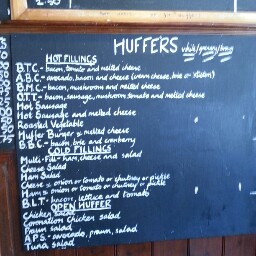 HUFFERS white/granary/brown
HOT FILLINGS
B.T.C - bacon, tomato and melted cheese
A.B.C - avocado, bacon and cheese (cream cheese, brie or stilton)
B.M.C - bacon, mushroom and melted cheese
O.T.T - bacon, sausage, mushroom, tomato and melted cheese
Hot Sausage
Hot Sausage and melted cheese
Roasted Vegetable
Huffer Burger & melted cheese
B.B.C - bacon, brie and cranberry
COLD FILLINGS
Multi-Fill - ham, cheese and salad
Cheese Salad
Ham Salad
Cheese & onion or tomato or chutney or pickle
Ham & onion or tomato or chutney or pickle
B.L.T - bacon, lettuce and tomato
OPEN HUFFER
Chicken Salad
Coronation Chicken Salad
Prawn Salad
A.P.S - avocado, prawn, salad
Tuna Salad